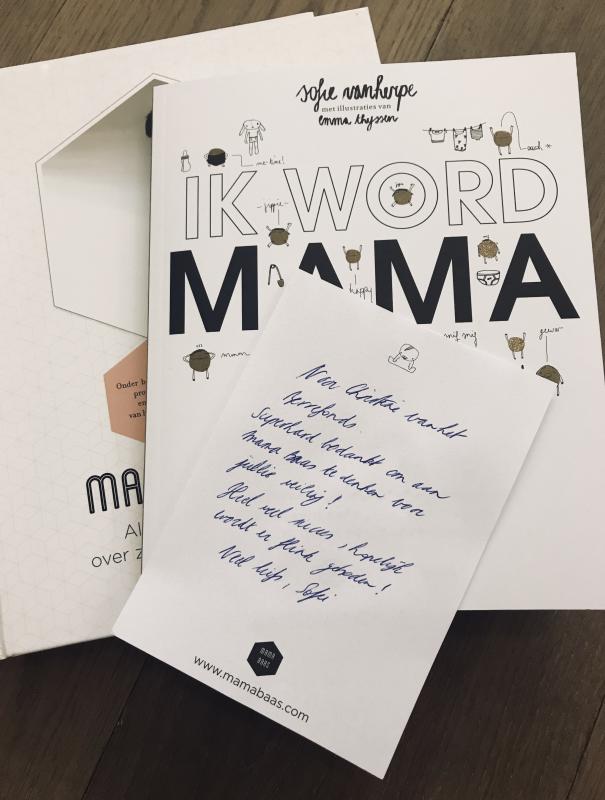 sofie vanherpe
met illustraties van
emma thyssen
me-time!
ouch *
IK WORD
-jippie-
MAMA
happy
mmm
mij mij
geeuw
Onder b
pro
en
van h
MA
Al
over z
Voor Christine van het
Berrefonds.
Superhard bedankt om aan
mama baas te denken voor
jullie veiling!
Heel veel succes, hopelijk
wordt er flink geboden!
Veel liefs, Sofie
MAMA
BAAS
www.mamabaas.com